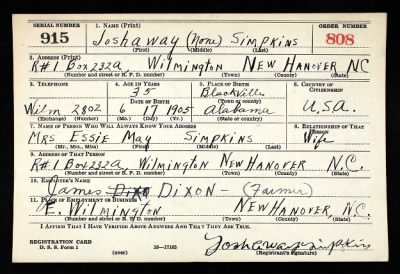 SERIAL NUMBER 1. NAME (Print) ORDER NUMBER
915 Joshaway (None) Simpkins 808
(First) (Middle) (Last)
2. ADDRESS (Print)
R#1 Box 232A Wilmington New Hanover NC
(Number and street or R. F. D. number) (Town) (County) (State)
3. TELEPHONE 4. AGE IN YEARS 5. PLACE OF BIRTH 6. COUNTRY OF CITIZENSHIP
35 Blackville
DATE OF BIRTH (Town or county)
Wilm 2802 6 17 1905 Alabama U.S.A.
(Exchange) (Number) (Mo.) (Day) (Yr.) (State or country)
7. NAME OF PERSON WHO WILL ALWAYS KNOW YOUR ADDRESS 8. RELATIONSHIP OF THAT PERSON
Mrs Essie May Simpkins Wife
(Mr., Mrs., Miss) (First) (Middle) (Last)
9. ADDRESS OF THAT PERSON
R#1 Box 232A, Wilmington New Hanover N.C.
(Number and street or R. F. D. number) (Town) (County) (State)
10. EMPLOYER'S NAME
James Dixo Dixon - (Farmer)
11. PLACE OF EMPLOYMENT OR BUSINESS
E. Wilmington New Hanover, N.C.
(Number and street or R. F. D. number) (Town) (County) (State)
I AFFIRM THAT I HAVE VERIFIED ABOVE ANSWERS AND THAT THEY ARE TRUE.
REGISTRATION CARD
D. S. S. Form 1 (over) 16-17105 Joshaway Simpkins
(Registrant's signature)